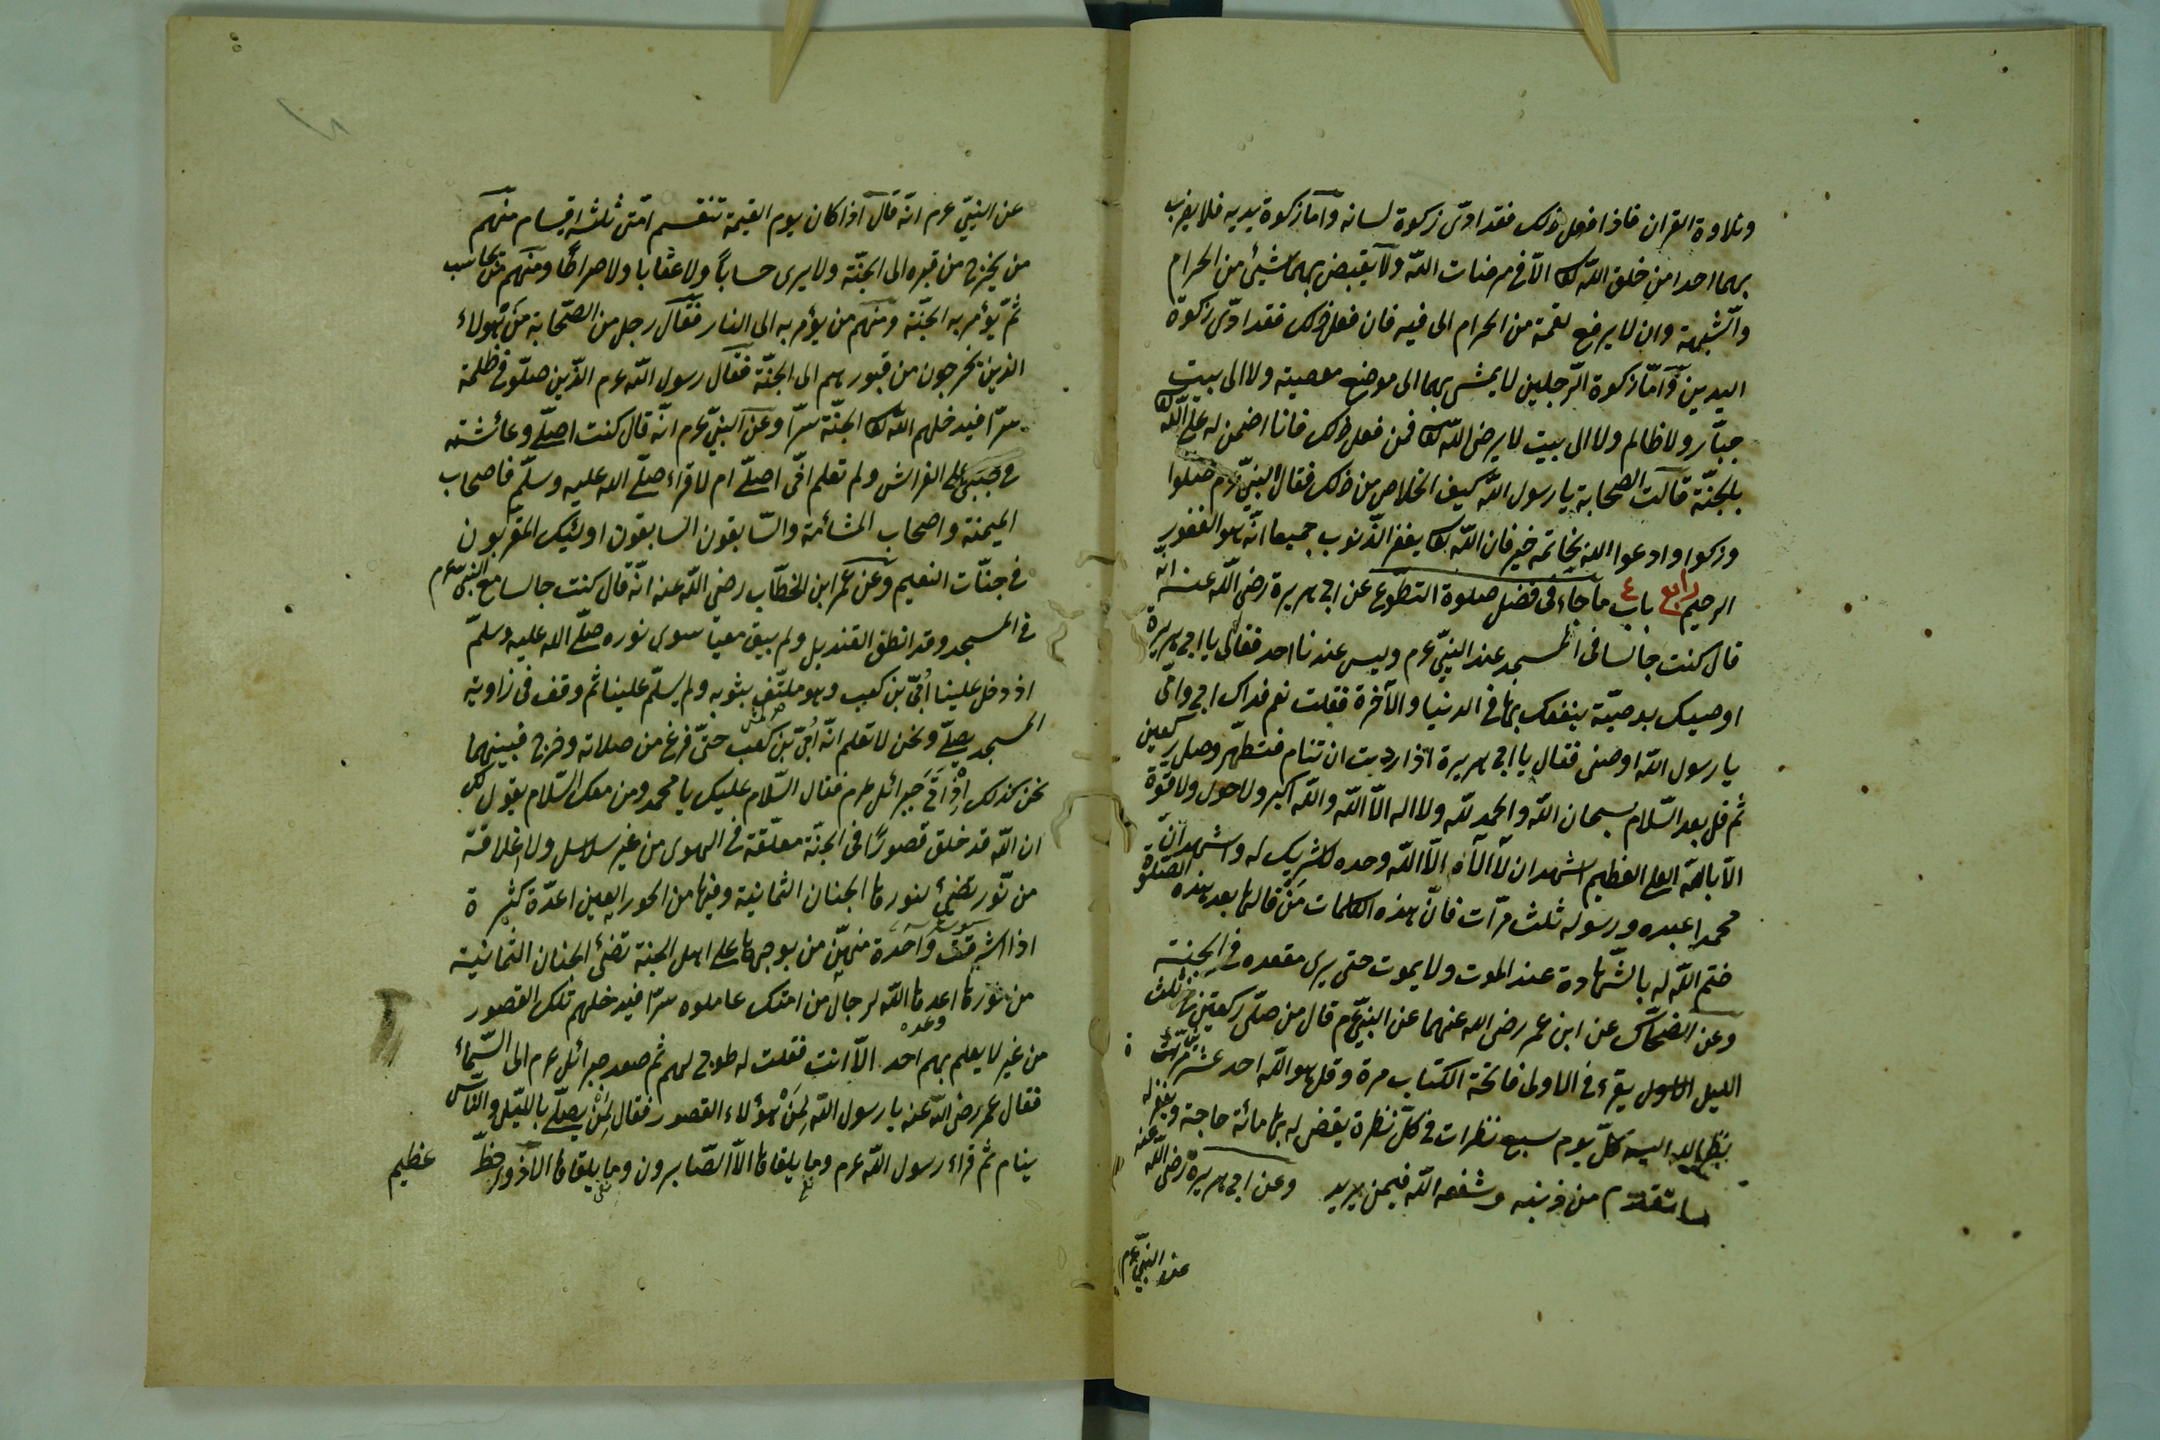 وتلاوة القران فاذا فعل ذلك فقد ادّى زكوة لسانه وآما زكوة يديه فلا يضرب
بهما احدا من خلق الله تعا الّا فى مرضات الله ولا يقبض بهما شيئ من الحرام
والشّبهة وان لا يرفع لقمة من الحرام الى فيه فان فعل ذلك فقد ادّى زكوة
اليدين وآمّا زكوة الرّجلين لا يمشى بهما الى موضع معصية ولا الى بيت
جبّار ولا ظالم ولا الى بيت لا يرضى الله تعا فمن فعل ذلك فانا اضمن له على الله تعا
بالجنّة قالت الصّحابة يا رسول الله كيف الخلاص من ذلك فقال النبىّ عم صلوا
وزكوا وادعوا الله بخاتمه خير فان الله تعا يغفر الذّنوب جميعا انّه هو الغفور
الرحيم رابع باب ٤ ما جاء فى فضل صلوة التطوّع عن ابى هريرة رضى الله عنه انّه
قال كنت جالسا فى المسجد عند النبىّ عم وليس عندنا احد فقال يا ابى هريرة
اوصيك بوصيّة ينفعك بها فى الدنيا والآخرة فقلت نعم فداك ابى وامّى
يا رسول الله اوصنى فقال يا ابى هريرة اذا اردت ان تنام فتطهّر وصل ركعتين
ثم قل بعد السّلام سبحان الله والحمد لله ولا اله الّا الله والله اكبر ولا حول ولا قوّة
الّا بالله العلى العظيم اشهد ان لا اله الّا الله وحده لا شريك له واشهد انّ
محمدا عبده ورسوله ثلث مرّات فانّ هذه الكلمات مَنْ قالها بعد هذه الصّلوة
ختم الله له بالشّهادة عند الموت ولا يموت حتى يرى مقعده فى الجنة
وعن الضحّاك عن ابن عمر رضى الله عنهما عن النبىّ عم قال من صلّى ركعتين فى ثلث
الليل الاول يقرء فى الاولى فاتحة الكتاب مرة وقل هو الله احد عشر مرّات
نظر الله اليه كلّ يوم سبع نظرات فى كلّ نظرة يقضى له بها مائة حاجة ويغفر له
ما تقدّم من ذنبه وشفعه الله فيمن يريد وعن ابى هريرة رضى الله عنه
عن النبىّ عم
عن النبىّ عم انّه قال اذا كان يوم القيمة تنقسم امّتى ثلثه اقسام منهم
من يخرج من قبره الى الجنّة ولا يرى حساباً ولا عقابا ولا صراطًا ومنهم من يحاسب
ثمّ يؤمر به الجنّة ومنهم من يؤمر به الى النار فقال رجل من الصّحابة مَن هولاء
الذين يخرجون من قبورهم الى الجنّة فقال رسول الله عم الذّين صلّو فى ظلمة
سرّا فيدخلهم الله تعا الجنّة سرّا وعن النبىّ عم انّه قال كنت اصلّى وعائشته
فى جنبى على الفراش ولم تعلم انّى اصلّى ام لا قراء صلّى الله عليه وسلّم فاصحاب
الميمنة واصحاب المشائمة والسّابقون السابقون اولئيك المقرّبون
فى جنّات النعيم وعن عمر ابن الخطّاب رضى الله عنه انّه قال كنت جالسا مع النبىّ عم
فى المسجد وقد انطفى القنديل ولم يبق معنا سوى نوره صلّى الله عليه وسلّم
اذ دخل علينا اُبىّ بن كعب وهو ملتّف بثوبه ولم يسلّم علينا ثم وقف فى زاوية
المسجد يصلّى ونحن لا نعلم انّه اُبىّ بن كعب حتّى فرغ من صلاته وخرج فبينهما
نحن كذلك اِذْ اَتَى جَبرائل عم فقال السّلام عليك يا محمد ومن معك السّلام يقول لك
ان الله قد خلق قصورًا فى الجنّة معلّقة فى الهوى من غير سلاسل ولا غلاقة
من نّور تضئ بنورها الجنان الثمانية وفيها من الحور العين اعدّة كثيرة
اذا اشرقت واحدة منهنّ من بوجهها على اهل الجنة تضئ الجنان الثمانية
من نورها اعدها الله لرجال من امتك عاملوه سرّا فيدخلهم تلك القصور
وعده
من غير لا يعلم بهم احد الّا انت فقلت له طوبى لهم ثم صعد جبرائل عم الى السّماء
فقال عمر رضى الله عنه يا رسول الله لِمَنْ هؤلاء القصور فقال لِمَنْ يصلّى باللّيل والنّاس
ينام ثم قراء رسول الله عم وما يلقاها الّا الصّابرون وما يلقاها الّا ذو حظّ عظيم